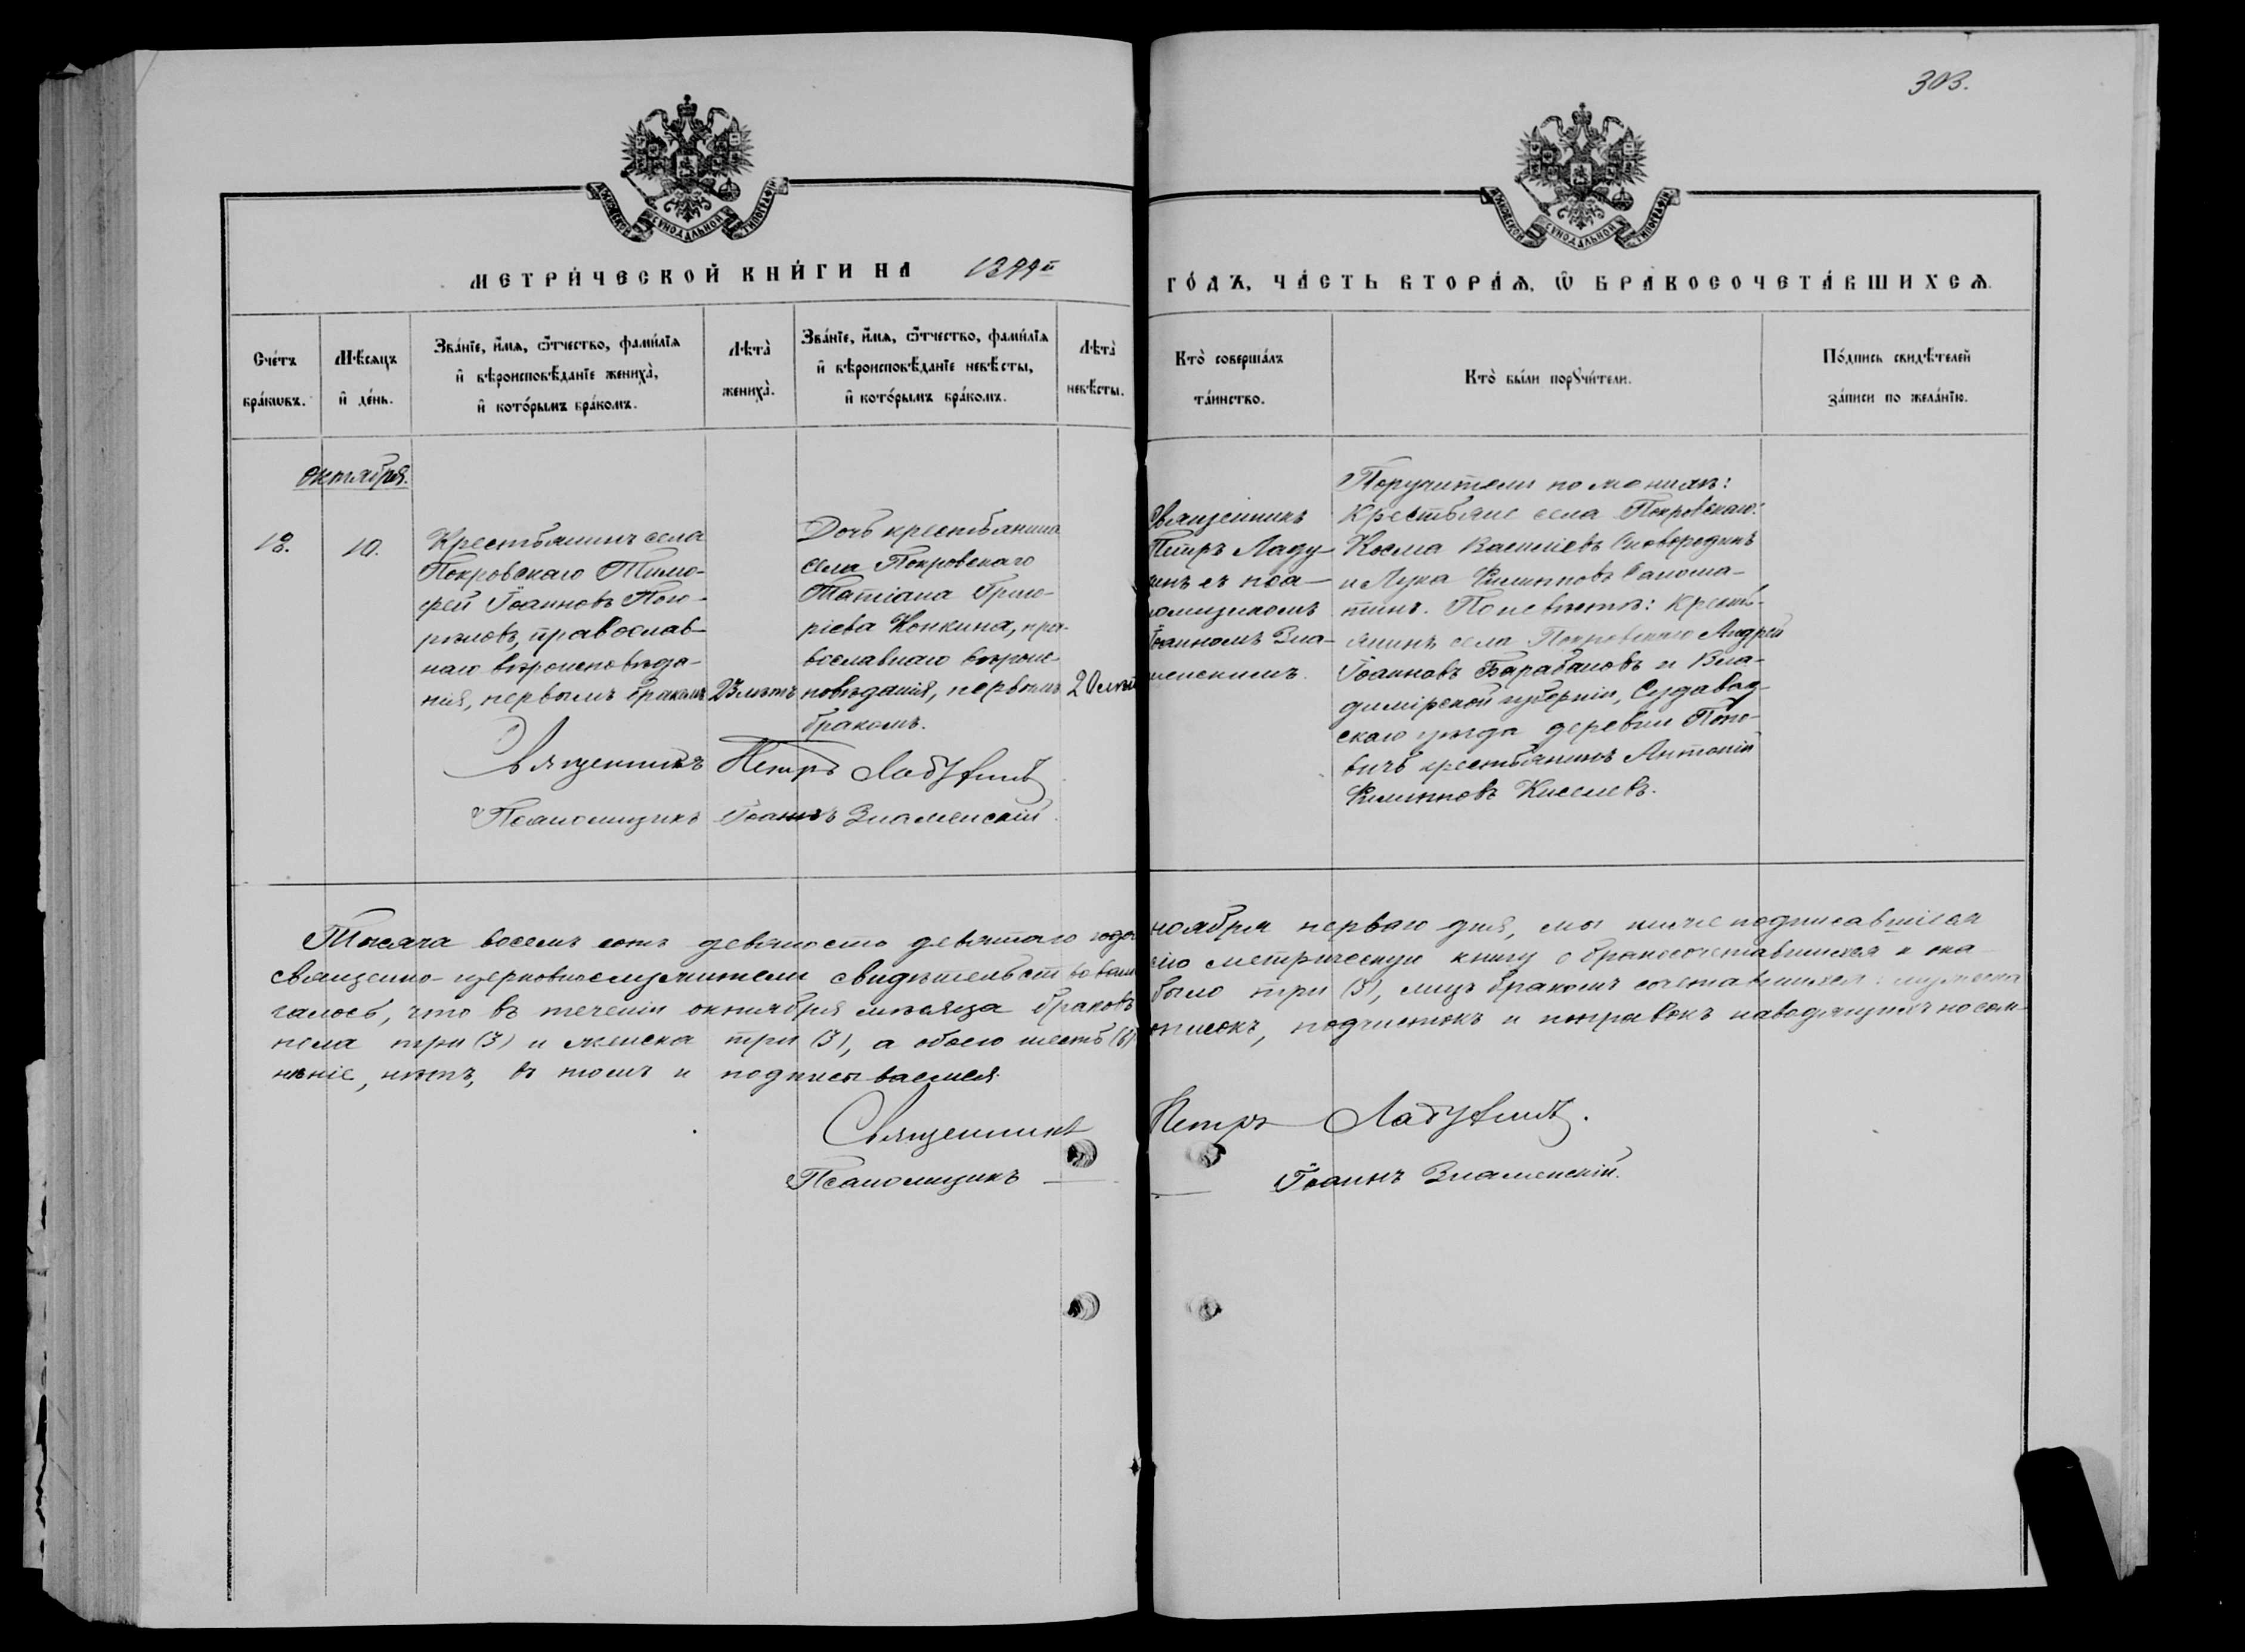 303.
СѴНОДАЛЬНОЙ
ТИПОГРАФІИ
СѴНОДАЛЬНОЙ
ТИПОГРАФІИ
МЕТРИ́ЧЕСКОЙ КНИ́ГИ НА 1899й
ГО́ДЪ, ЧА́СТЬ ВТОРА́Ѧ, Ѡ҆ БРАКОСОЧЕТА́ВШИХСѦ.
Сче́тъ
бра́кѡвъ.
Мѣ́сѧцъ
и҆ де́нь.
Зва́нїе, и҆́мѧ, ѻ҆́тчество, фами́лїѧ
и҆ вѣроисповѣ́данїе жениха̀,
и҆ кото́рымъ бра́комъ.
Лѣта̀
жениха̀.
Зва́нїе, и҆́мѧ, ѻ҆́тчество, фами́лїѧ
и҆ вѣроисповѣ́данїе невѣ́сты,
и҆ кото́рымъ бра́комъ.
Лѣта̀
невѣ́сты.
Кто̀ соверша́лъ
та́инство.
Кто̀ бы́ли порꙋчи́тели.
По́дпись свидѣ́телей
за́писи по жела́нїю.
Октября.
12.
10.
Крестьянинъ села
Покровскаго Тимо-
фей Іоанновъ
православ-
наго вѣроисповѣда-
нія, первымъ бракомъ
23 лѣтъ
Дочь крестьянина
села Покровскаго
Татіана Григо-
ріева Конкина, пра-
вославнаго вѣроис-
повѣданія, первымъ
бракомъ.
20 лѣтъ
Священникъ
Петръ Ладу-
инъ съ пса-
ломщикомъ
Іоанномъ Зна-
менскимъ.
Поручители по женихѣ:
Крестьяне села Покровскаго:
Косма Василіевъ Сковородинъ
и Лука Филипповъ
По невѣстѣ: Крестья-
янинъ села Покровскаго Андрей
Іоанновъ Барабановъ и Вла-
димірской губерніи,
скаго уѣзда деревни Попо-
вичь крестьянинъ Антоній
Филипповъ Киселевъ.
Священникъ Петръ
Псаломщикъ Іоаннъ Знаменскій.
Тысяча восемь сотъ девяносто девятаго года ноября перваго дня, мы ниже подписавшіеся
священно-церковнослужители свидѣтельствовали сію метрическую книгу о бракосочетавшихся и ока-
галось, что въ теченіи октября мѣсяца браковъ было три (3), лицъ бракомъ сочетавшихся: мужеска
пола три (3) и женска три (3), а обоего шесть (6) описокъ, подчистокъ и поправокъ наводящихъ по сом-
нѣніе, нѣтъ, въ томъ и подписываемся.
Священникъ Петръ
Псаломщикъ Іоаннъ Знаменскій.